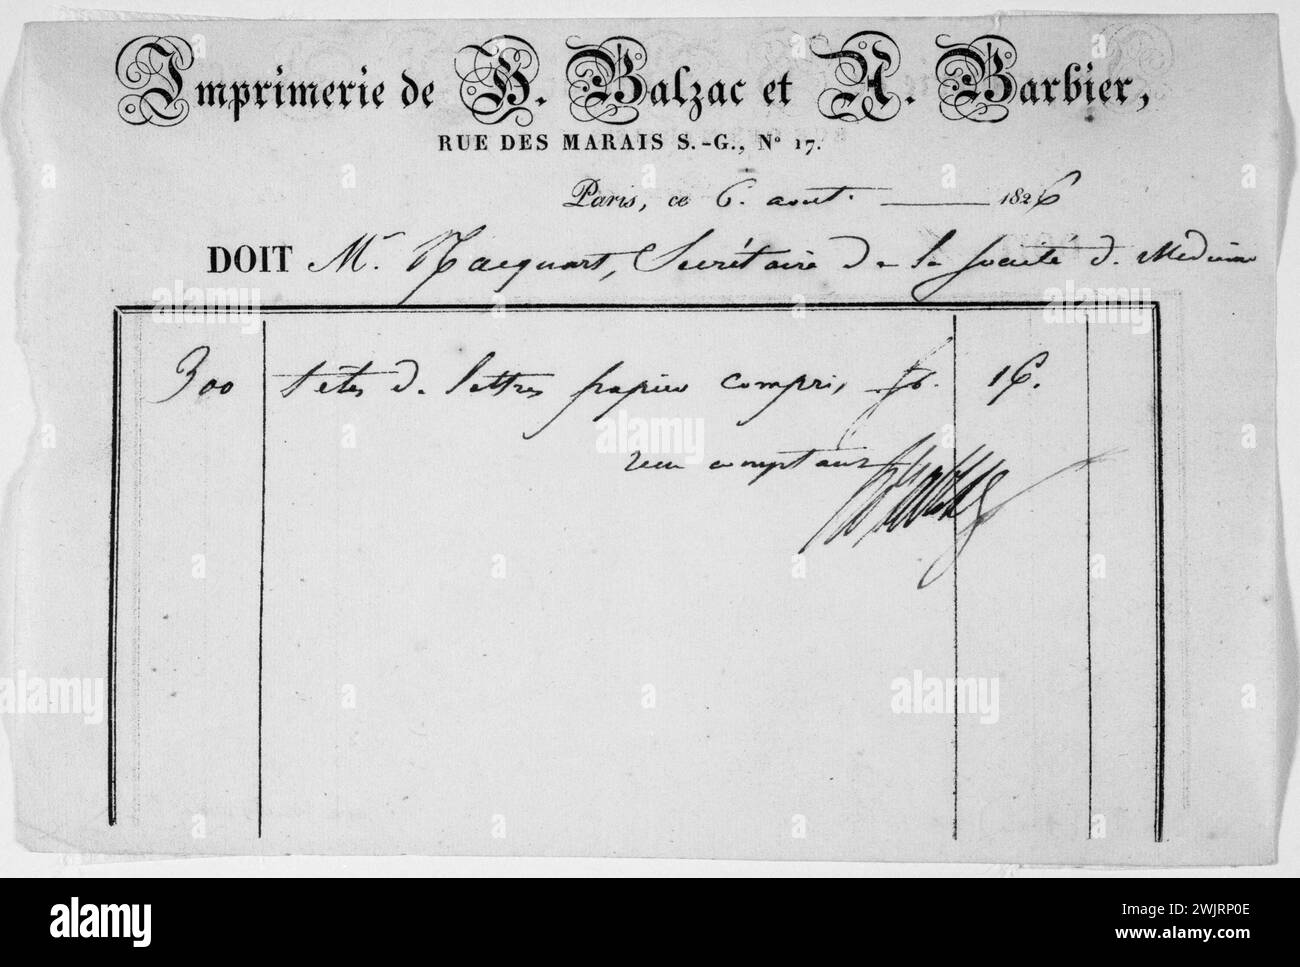 Imprimerie de H. Balzac et A. Barbier,
RUE DES MARAIS S.-G., Nº 17.
Paris, ce 6. aout. 1826
DOIT Mr. Nacquart, Secrétaire de la Société de Médecine
300 têtes de lettres papier compris, f. 16.
reçu comptant
alamy
Image ID: 2WJRP0E
www.alamy.com